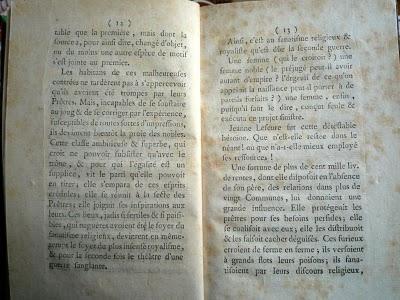 ( 12 )
table que la premiere, mais dont la
source a, pour ainsi dire, changé d'objet,
ou du moins une autre espèce de motif
s'est jointe au premier.
Les habitans de ces malheureuses
contrées ne tarderent pas à s'appercevoir
qu'ils avoient été trompés par leurs
Prêtres. Mais, incapables de se soustraire
au joug & de se corriger par l'expérience,
susceptibles de toutes sortes d'impressions,
ils devinrent bientôt la proie des nobles.
Cette classe ambitieuse & superbe, qui
croit ne pouvoir subsister qu'avec le trône
& pour qui l'égalité est un
supplice, vit le parti qu'elle pouvoit
en tirer; elle s'empara de ces esprits
; elle se réunit à la secte des
Prêtres; elle joignit ses inspirations aux
leurs. Ces lieux, jadis si fertiles & si paisi-
bles, qui nagueres avoient été le foyer du
fanatisme religieux, devinrent en même-
temps le foyer du plus insensé royalisme,
& pour la seconde fois le théâtre d'une
guerre sanglante.
( 13 )
Ainsi, c'est au fanatisme religieux &
royaliste qu'est dûe la seconde guerre.
Une femme ( qui le croiroit ? ) une
femme noble ( le préjugé peut-il avoir
autant d'empire ? l'orgueil de ce qu'on
appeloit la naissance peut-il porter à de
pareils forfaits ? ) une femme, enfin,
puisqu'il faut le dire, conçut seule &
exécuta ce projet sinistre.
Jeanne Lefeure fut cette détestable
héroïne. Que n'est-elle restée dans le
néant ! ou que n'a-t-elle mieux employé
ses ressources, !
Une fortune de plus de cent mille liv.
de rentes, dont elle disposoit en l'absence
de son père, des relations dans plus de
vingt Communes, lui donnoient une
grande influence. Elle protégeoit les
prêtres pour ses besoins perfides; elle
se coalisoit avec eux, elle les distribuoit
& les faisoit cacher déguisés. Ces furieux
erroient de ferme en ferme; ils versoient
à grands flots leurs poisons; ils fana-
tisoient par leurs discours religieux,